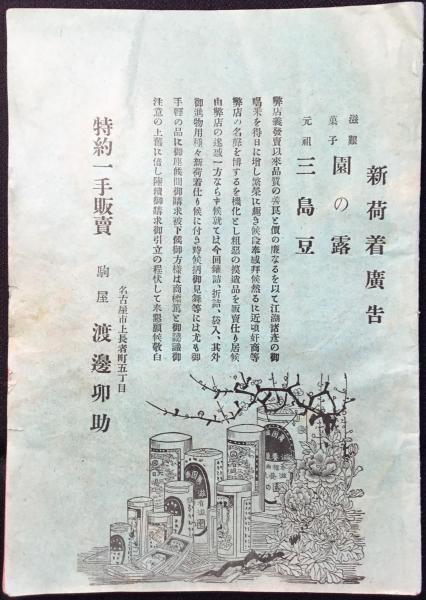 新荷着廣告
滋養
菓子
園の露
元祖
三島豆
弊店義發賣以來品質の善良と價の廉なるを以て江湖諸彥の御
喝釆を得日に增し繁榮に趣き候段奉感拜候然るに近頃奸商等
弊店の名聲を博するを機化とし粗惡の摸造品を販賣仕り居候
由弊店の迷惑一方ならす候就ては今回罐詰、折詰、袋入、其外
御進物用種々新荷着仕り候に付き時候柄御見舞等には尤も御
手輕の品に御座候間御購求被下候御方樣は商標篤と御認識御
注意の上舊に倍し陸續御購求御引立の程伏して奉懇願候敬白
名古屋市上長者町五丁目
特約一手販賣
駒屋
渡邊卯助